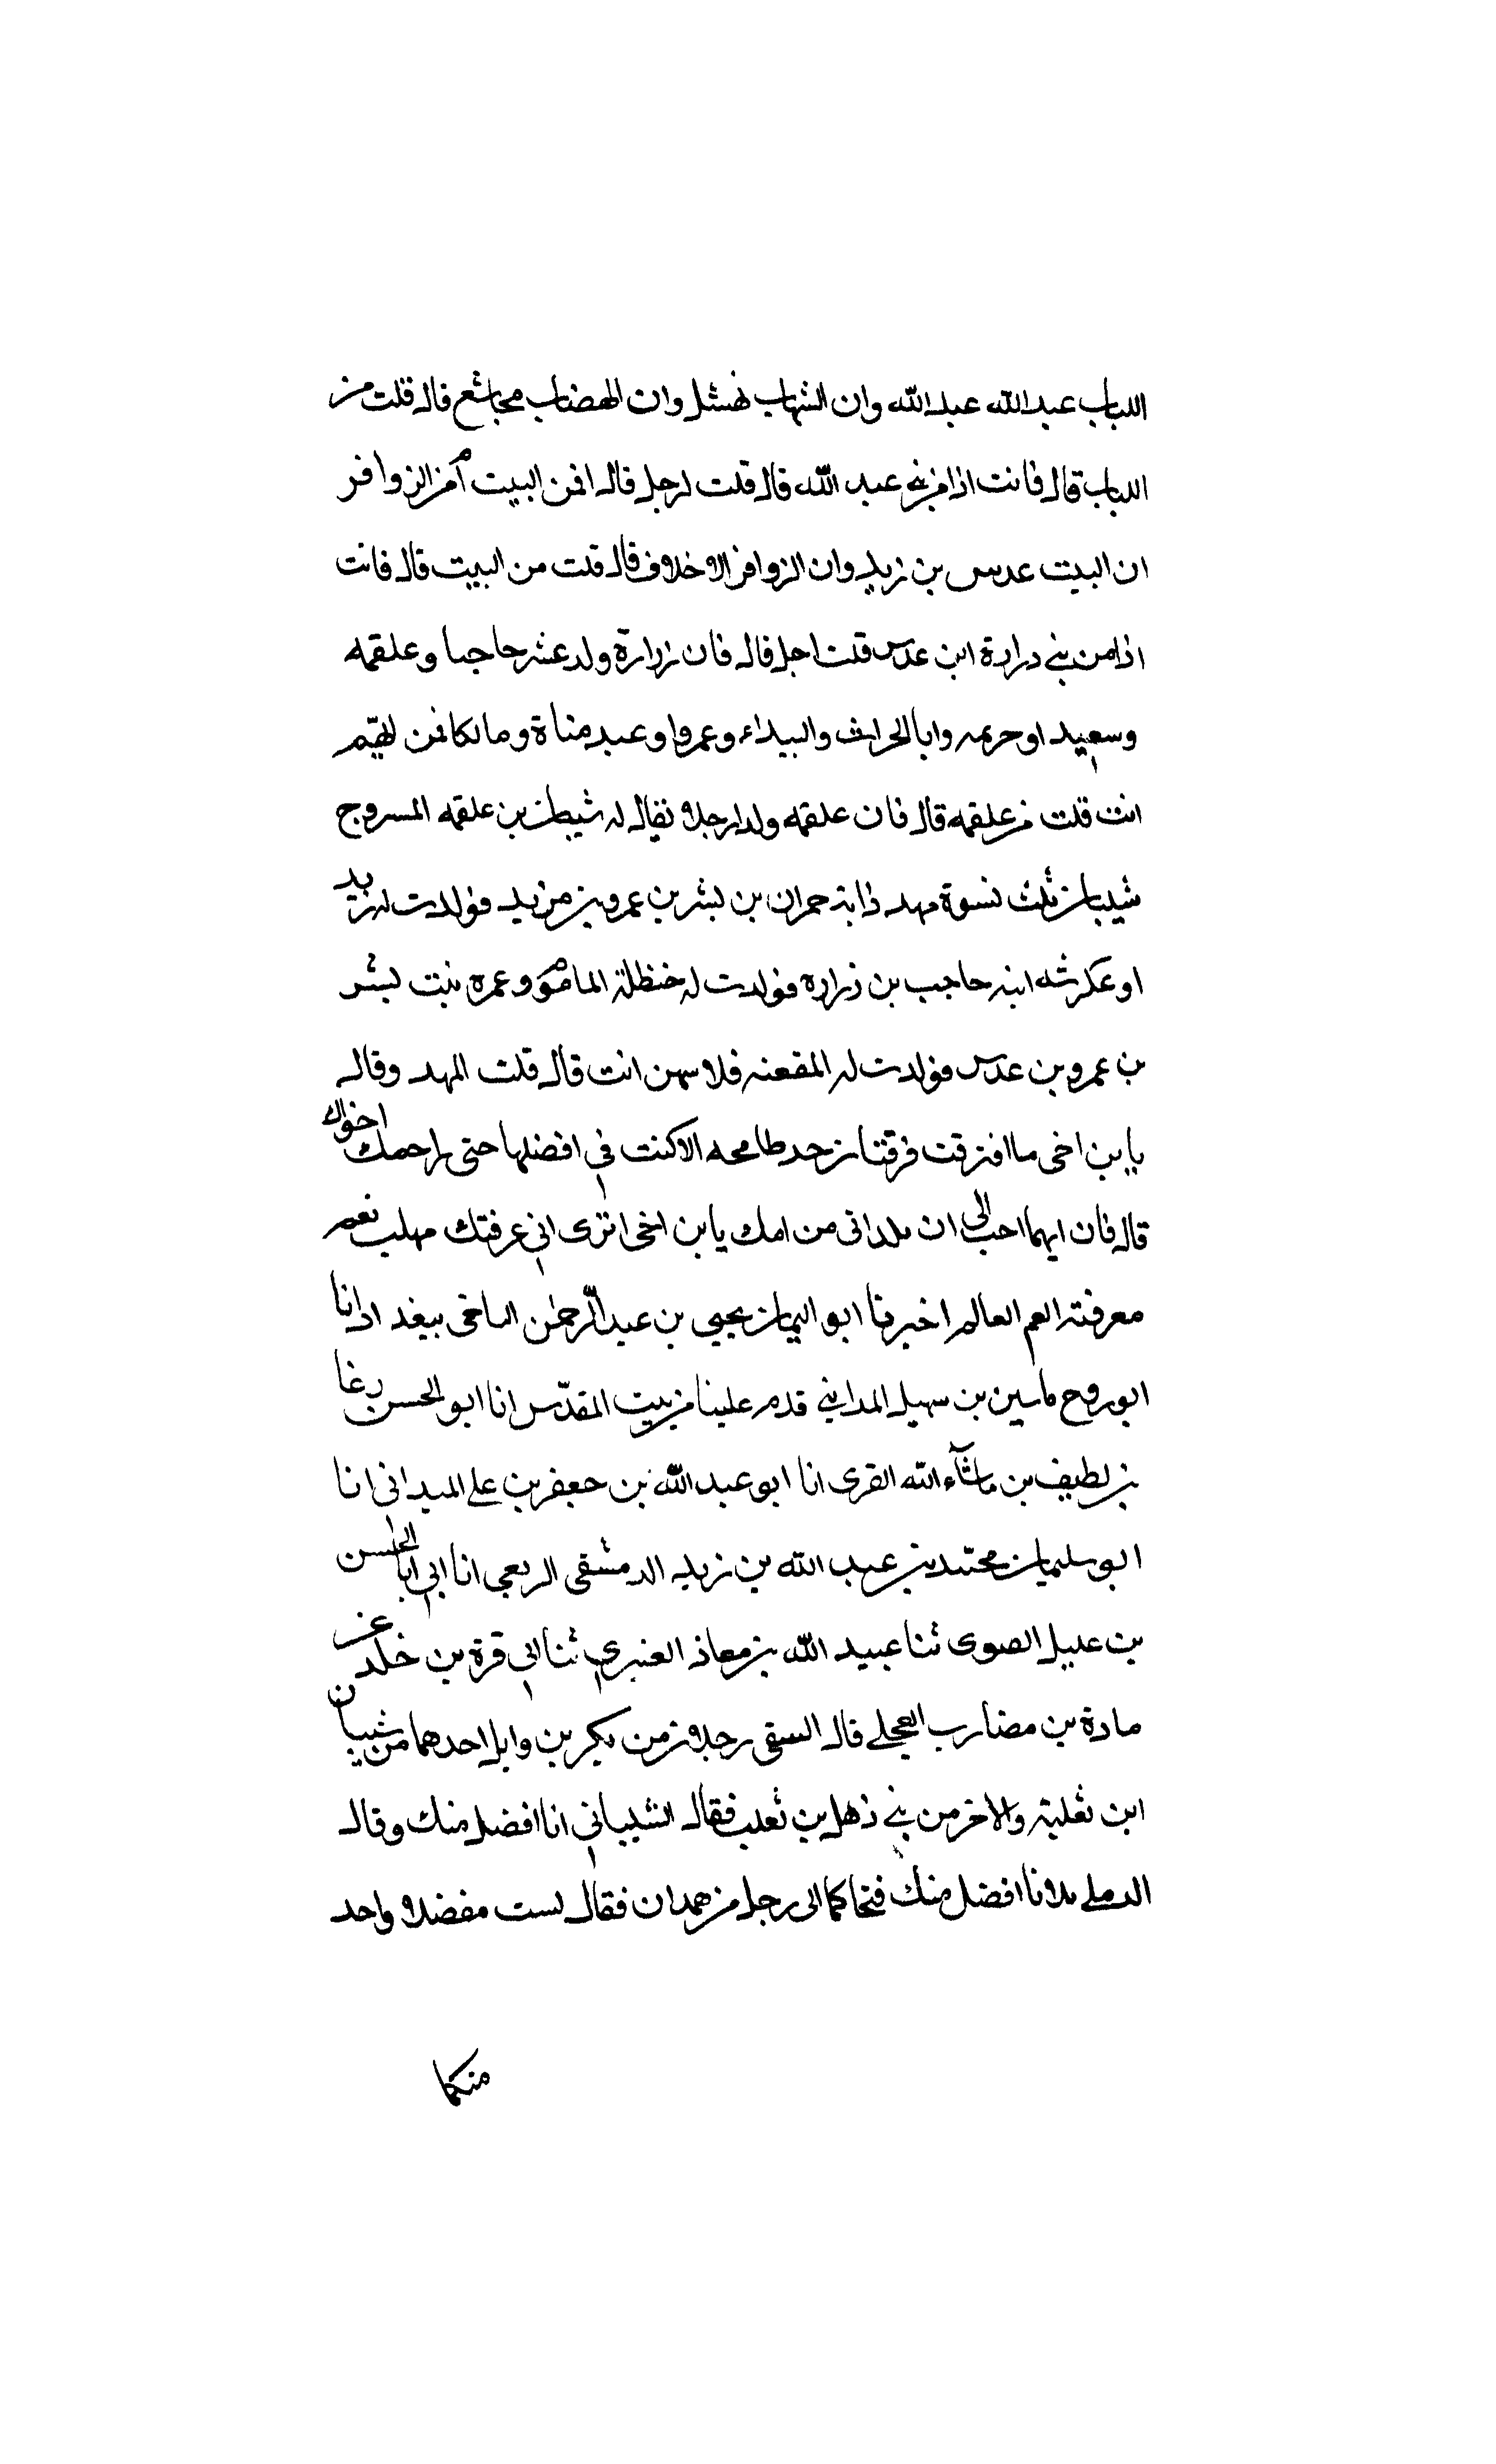 اللباب عبدالله عبدالله وان الشهاب نهشل وان الهضاب مجاشع قال قلت من
اللباب قال فانت اذا من بنى عبد الله قال قلت لرجل قال افمن البيت ام من الزوافر
ان البيت عدس بن زيد وان الزوافر الاخلاف قال قلت من البيت قال فانت
اذا من بنى درارة ابن عدس قلت اجل قال فان زرارة ولد عشر حاجبا وعلقمه
وسعيد او حريمه وابا الحراث والبيداء وعمروا وعبد مناة ومالكا فمن ايهم
انت قلت من علقمه قال فان علقمه ولد رجلا يقال له شيطان بن علقمه المسروج
شيبان ثلث نسوة مهدد ذابة حمران بن بشر بن عمرو بن مزيد فولدت له يزيد
او عكرشه ابنه حاجب بن زراره فولدت له حنظلة المامو وعمره بنت بشر
بن عمرو بن عدس فولدت له المقعنه فلا يهن انت قال قلت المهد وقال
يابن اخى ما افترقت فرقتان حد طامحه الا كنت في افضلها حتى راحمك اخواك
قال فان ايهما احب الى ان يلدانى من امك يابن اخى اترى انى عرفتك مهلب نعم
معرفته العم العالم اخبرنا ابو اليمان يحيى بن عبد الرحمن الباخى ببغداد انا
ابو روح ياسين بن سهيل المدايني قدم علينا من بيت المقدس انا ابو الحسن رغا
بن لطيف بن ماشآء الله القرى انا ابو عبد الله بن جعفر بن على الميدانى انا
ابو سليمان محمد بن عبد الله بن زيد الدمشقى الربعي انا ابى ابا الحسن
بن عليل الصوى ثنا عبيد الله بن معاذ العنبري ثنا ابى قرة بن خلد عن
مادة بن مضارب العجلي قال السقى رجلان من بكر بن وايل احدهما من شيبان
ابن ثعلبة والاخر من بنى ذهل بن ثعلب فقال الشيبانى انا افضل منك وقال
الدملى بل انا افضل منك فتحاكما الى رجل من همدان فقال لست مفضلا واحد
منكما